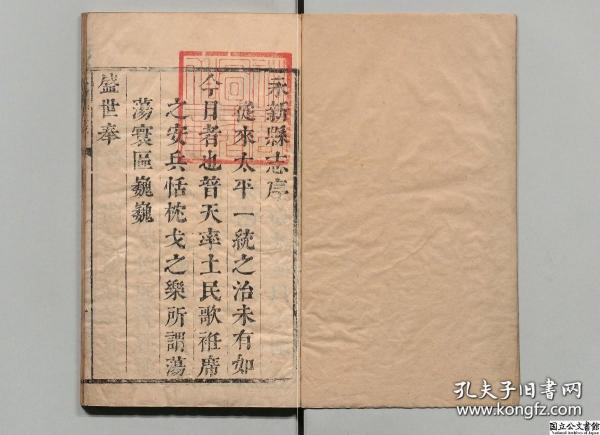 永新縣志序
從來太平一統之治未有如
今日者也普天率土民歌袵席
之安兵恬枕戈之樂所謂蕩
蕩寰區巍巍
盛世奉
孔夫子旧书网
www.kongfz.com
国立公文書館
National Archives of Japan